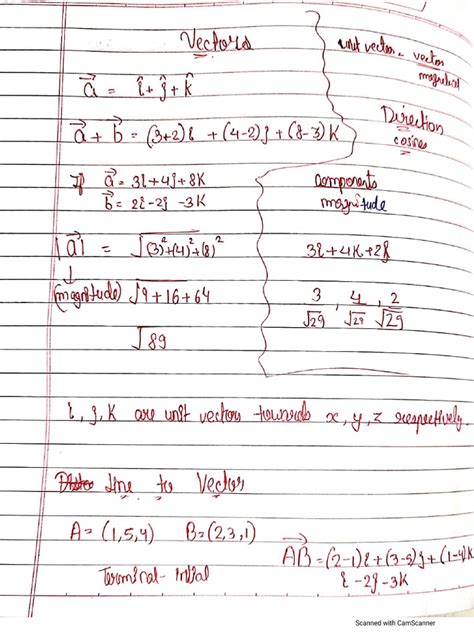 Vectors
a⃗ = î + ĵ + k̂
a⃗ + b⃗ = (3+2)î + (4-2)ĵ + (8-3)K
If a⃗ = 3î+4ĵ+8K
b⃗ = 2î-2ĵ-3K
|a⃗| = √(3)²+(4)²+(8)²
↓
(magnitude) √9+16+64
√89
unit vector = vector
magnitude
Direction
cosines
components
magnitude
3î+4K+2ĵ
3/√29, 4/√29, 2/√29
î, ĵ, K are unit vectors towards x, y, z respectively.
line to Vector
A = (1,5,4) B=(2,3,1)
Terminal - initial
AB⃗ = (2-1)î+(3-5)ĵ+(1-4)K
î-2ĵ-3K
Scanned with CamScanner